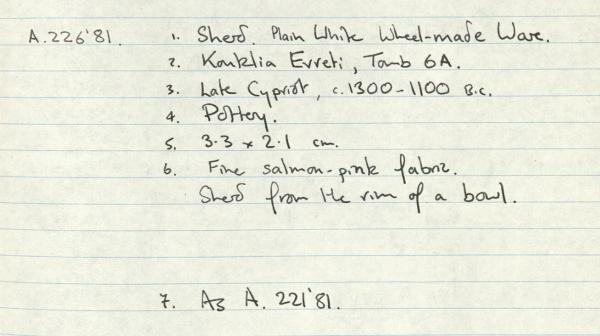 A.226'81. 1. Sherd. Plain White Wheel-made Ware.
2. Kouklia Evreti, Tomb 6A.
3. Late Cypriot, c.1300-1100 B.C.
4. Pottery.
5. 3.3 x 2.1 cm.
6. Fine salmon-pink fabric.
Sherd from the rim of a bowl.
7. As A. 221'81.